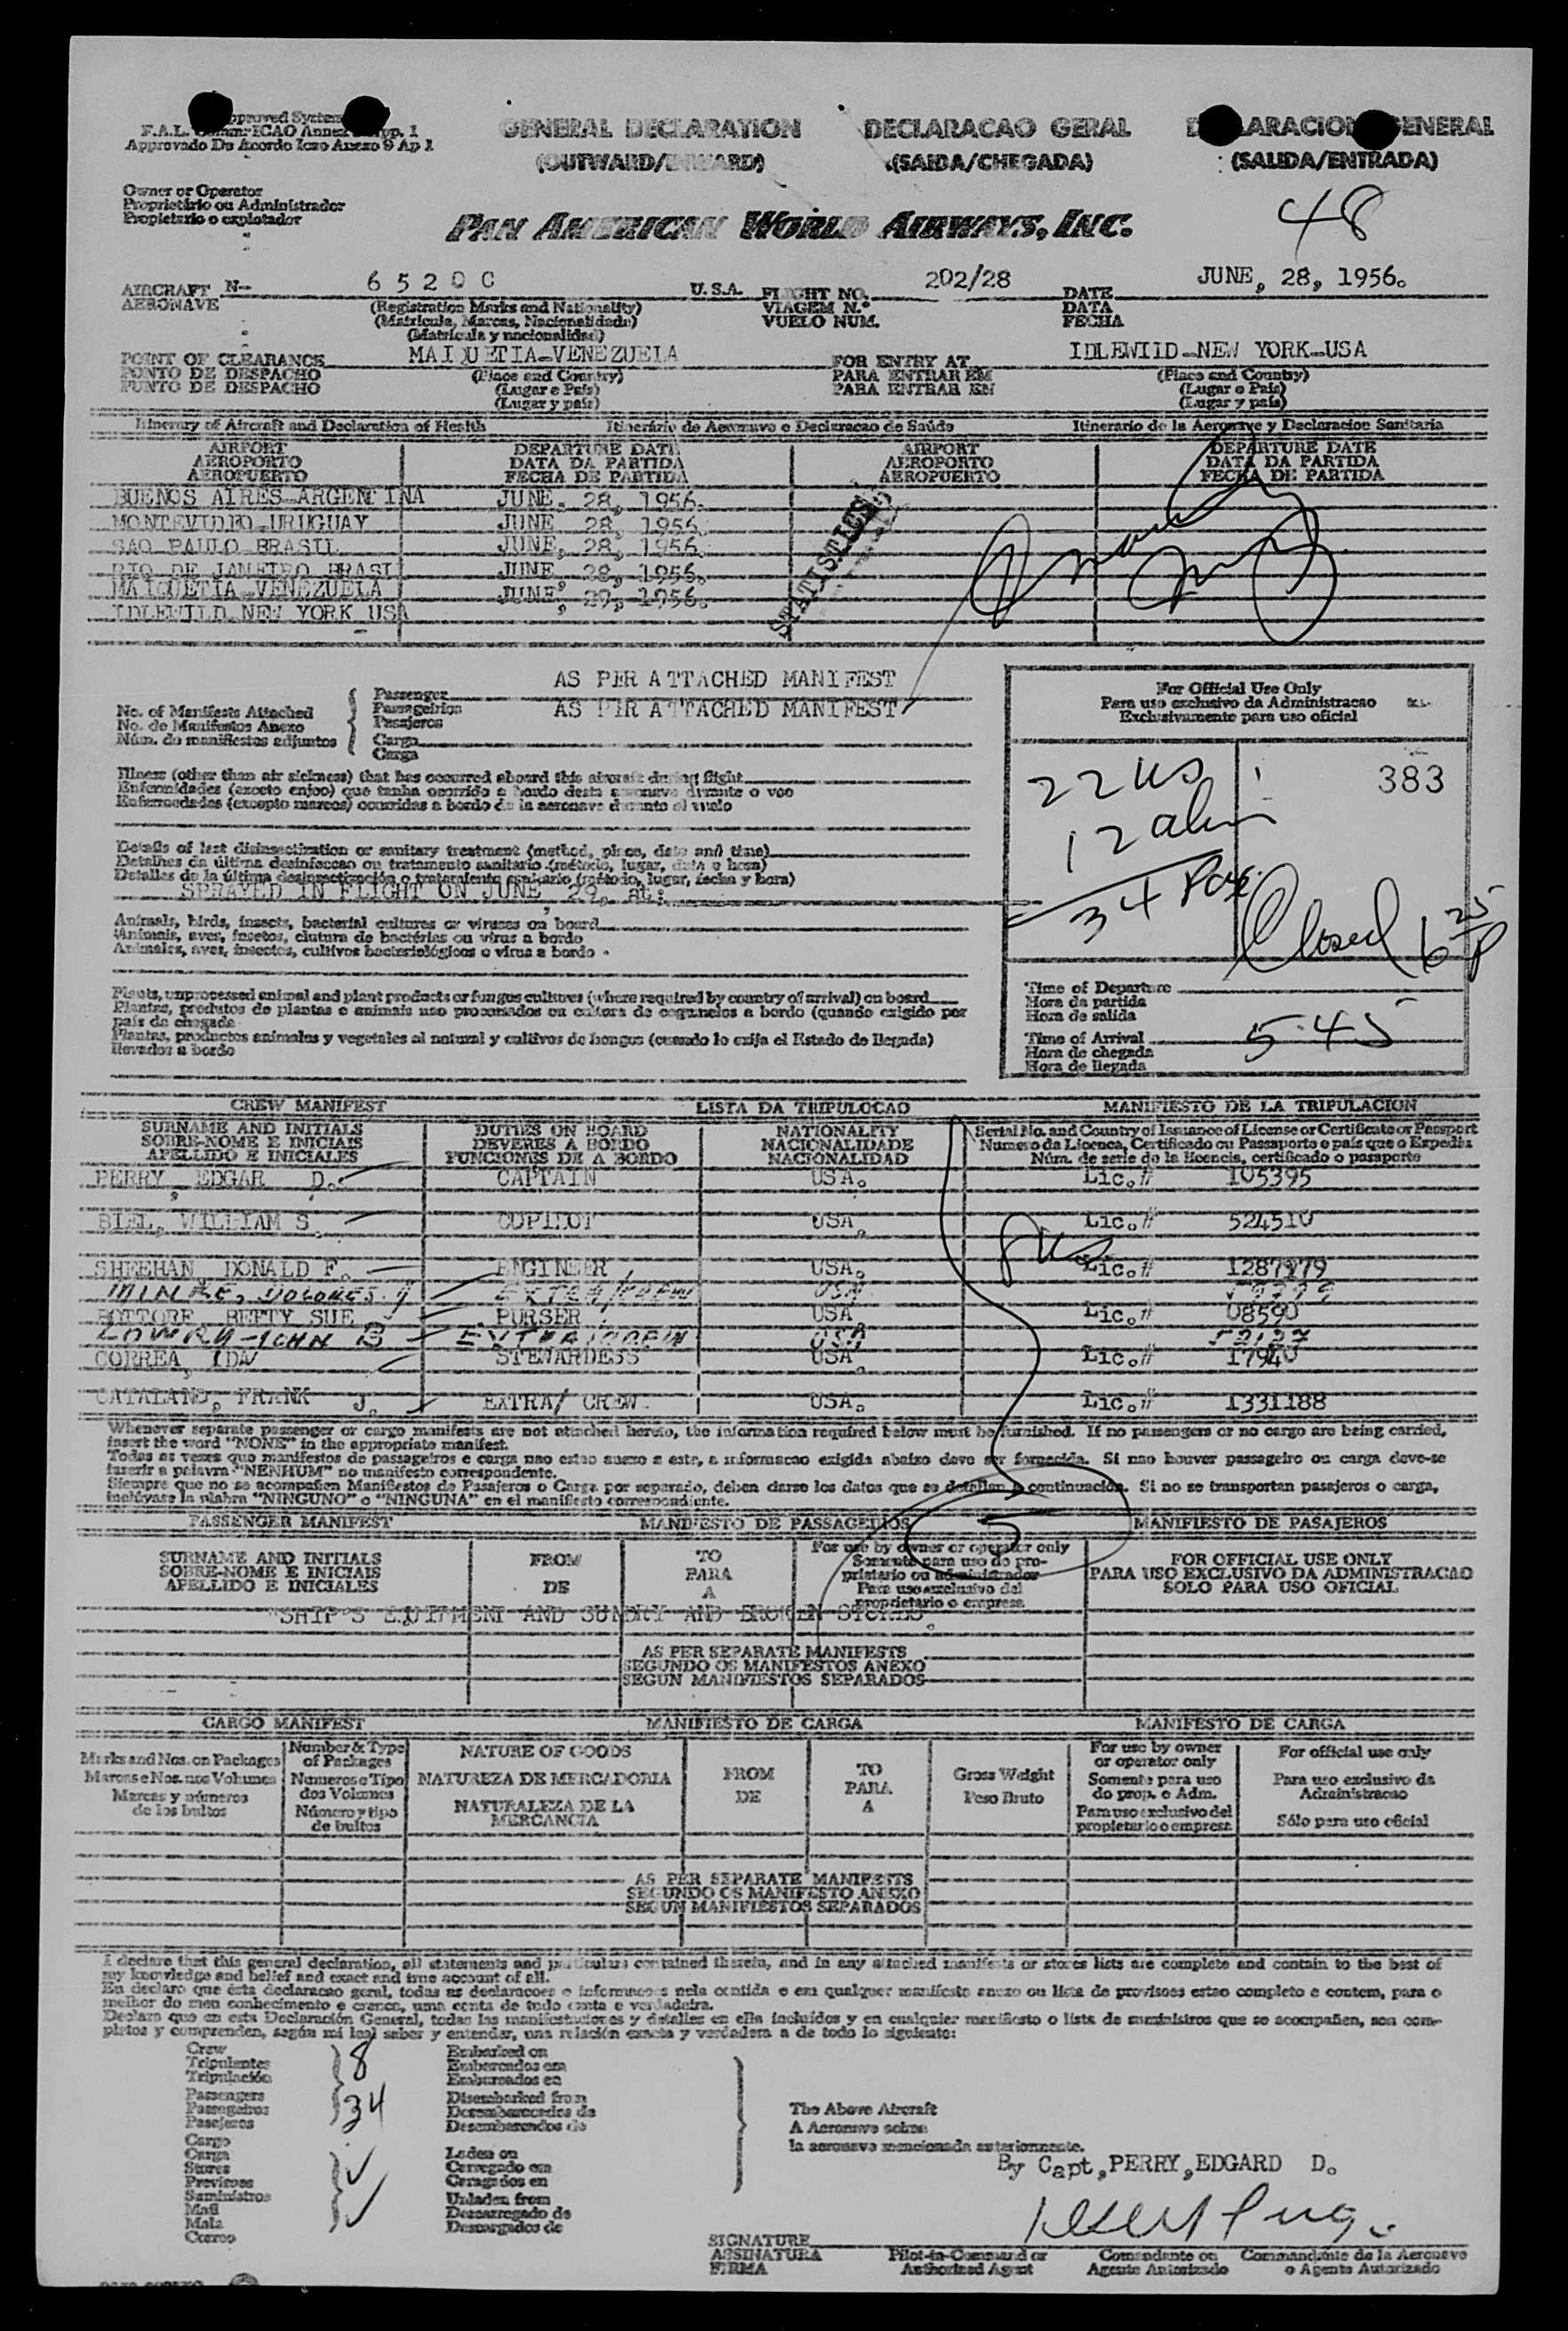 Approved System
F.A.L. Comm: ICAO Annex 9 App. 1
Approvado De Acordo Icao Anexo 9 Ap 1
GENERAL DECLARATION DECLARACAO GERAL DECLARACION GENERAL
(OUTWARD/INWARD) (SAIDA/CHEGADA) (SALIDA/ENTRADA)
Owner or Operator
Proprietário ou Administrador
Propietario o explotador
PAN AMERICAN WORLD AIRWAYS, INC.
48
AIRCRAFT N- 6520C U.S.A. FLIGHT NO. 202/28 DATE JUNE, 28, 1956.
AERONAVE (Registration Marks and Nationality) VIAGEM N.º DATA
(Matricula, Marcas, Nacionalidade) VUELO NUM. FECHA
(Matricula y nacionalidad)
POINT OF CLEARANCE MAIQUETIA-VENEZUELA FOR ENTRY AT IDLEWILD-NEW YORK-USA
PONTO DE DESPACHO (Place and Country) PARA ENTRAR EM (Place and Country)
PUNTO DE DESPACHO (Lugar e País) PARA ENTRAR EN (Lugar e País)
(Lugar y país) (Lugar y país)
Itinerary of Aircraft and Declaration of Health Itinerário de Aeronave e Declaracao de Saúde Itinerario de la Aeronave y Declaracion Sanitaria
AIRPORT DEPARTURE DATE AIRPORT DEPARTURE DATE
AEROPORTO DATA DA PARTIDA AEROPORTO DATA DA PARTIDA
AEROPUERTO FECHA DE PARTIDA AEROPUERTO FECHA DE PARTIDA
BUENOS AIRES-ARGENTINA JUNE. 28, 1956.
MONTEVIDEO-URUGUAY JUNE 28, 1956.
SAO PAULO BRASIL JUNE, 28, 1956.
RIO DE JANEIRO BRASIL JUNE, 28, 1956.
MAIQUETIA-VENEZUELA JUNE, 29, 1956.
IDLEWILD NEW YORK USA
STATISTICS
No. of Manifests Attached
No. de Manifestos Anexo
Núm. de manifiestos adjuntos
Passenger AS PER ATTACHED MANIFEST
Passageirios
Pasajeros
Cargo AS PER ATTACHED MANIFEST
Carga
For Official Use Only
Para uso exclusivo da Administracao
Exclusivamente para uso oficial
22 US
12 alien
34 Pax
383
Closed 6 25 P
Illness (other than air sickness) that has occurred aboard this aircraft during flight
Enfermidades (exceto enjoo) que tenha ocorrido a bordo desta aeronave durante o voo
Enfermedades (excepto mareos) ocurridas a bordo de la aeronave durante el vuelo
Details of last disinsectization or sanitary treatment (method, place, date and time)
Detalhes da última desinfeccao ou tratamento sanitario (método, lugar, data e hora)
Detalles de la última desinsectización o tratamiento sanitario (método, lugar, fecha y hora)
SPRAYED IN FLIGHT ON JUNE, 29, at:
Animals, birds, insects, bacterial cultures or viruses on board
Animais, aves, insetos, clutura de bactérias ou virus a bordo
Animales, aves, insectos, cultivos bacteriológicos o virus a bordo
Plants, unprocessed animal and plant products or fungus cultures (where required by country of arrival) on board
Plantas, produtos de plantas e animais nao processados ou cultura de cogumelos a bordo (quando exigido por
país da chegada
Plantas, productos animales y vegetales al natural y cultivos de hongos (cuando lo exija el Estado de llegada)
llevados a bordo
Time of Departure
Hora da partida
Hora de salida
Time of Arrival 5:45
Hora de chegada
Hora de llegada
CREW MANIFEST LISTA DA TRIPULOCAO MANIFIESTO DE LA TRIPULACION
SURNAME AND INITIALS DUTIES ON BOARD NATIONALITY Serial No. and Country of Issuance of License or Certificate or Passport
SOBRE-NOME E INICIAIS DEVERES A BORDO NACIONALIDADE Numero da Licenca, Certificado ou Passaporte e país que o Expediu
APELLIDO E INICIALES FUNCIONES DE A BORDO NACIONALIDAD Núm. de serie de la licencia, certificado o pasaporte
PERRY, EDGAR D. CAPTAIN USA. Lic.# 105395
BIEL, WILLIAM S. COPILOT USA. Lic.# 524510
SHEEHAN DONALD F. ENGINEER USA. Lic.# 1287179
DOLORES. J EXTRA/CREW USA
BOTTORF, BETTY SUE PURSER USA Lic.# 08590
LOWRY-JOHN B EXTRA/CREW USA 52127
CORREA, IDA STEWARDESS USA Lic.# 17940
CATALANO, FRANK J. EXTRA/ CREW. USA. Lic.# 1331188
Whenever separate passenger or cargo manifests are not attached hereto, the information required below must be furnished. If no passengers or no cargo are being carried,
insert the word "NONE" in the appropriate manifest.
Todas as vezes que manifestos de passageiros e carga nao estao anexo a este, a informacao exigida abaixo deve ser fornecida. Si nao houver passageiro ou carga deve-se
inserir a palavra "NENHUM" no manifesto correspondente.
Siempre que no se acompañen Manifiestos de Pasajeros o Carga por separado, deben darse los datos que se detallan a continuación. Si no se transportan pasajeros o carga,
inclúyase la plabra "NINGUNO" o "NINGUNA" en el manifiesto correspondiente.
PASSENGER MANIFEST MANIFESTO DE PASSAGEIROS MANIFIESTO DE PASAJEROS
SURNAME AND INITIALS FROM TO For use by owner or operator only FOR OFFICIAL USE ONLY
SOBRE-NOME E INICIAIS DE PARA Somente para uso do pro- PARA USO EXCLUSIVO DA ADMINISTRACAO
APELLIDO E INICIALES A prietario ou administrador SOLO PARA USO OFICIAL
Para uso exclusivo del
proprietario o empresa
"SHIP'S EQUIPMENT AND SUNDRY AND BROKEN STORES.
AS PER SEPARATE MANIFESTS
SEGUNDO OS MANIFESTOS ANEXO
SEGUN MANIFIESTOS SEPARADOS
CARGO MANIFEST MANIFIESTO DE CARGA MANIFESTO DE CARGA
Marks and Nos. on Packages Number & Type of Packages NATURE OF GOODS FROM TO Gross Weight For use by owner or operator only For official use only
Marcas e Nos. nos Volumes Numeros e Tipo dos Volumes NATUREZA DE MERCADORIA DE PARA Peso Bruto Somente para uso do prop. e Adm. Para uso exclusivo da Administracao
Marcas y números de los bultos Número y tipo de bultos NATURALEZA DE LA MERCANCIA A Para uso exclusivo del propietario o empresa Sólo para uso oficial
AS PER SEPARATE MANIFESTS
SEGUNDO OS MANIFESTO ANEXO
SEGUN MANIFIESTOS SEPARADOS
I declare that this general declaration, all statements and particulars contained therein, and in any attached manifests or stores lists are complete and contain to the best of
my knowledge and belief and exact and true account of all.
Eu declaro que ésta declaracao geral, todas as declaracoes e informacoes nela contida e em qualquer manifesto anexo ou lista de provisoes estao completo e contem, para o
melhor do meu conhecimento e crence, uma conta de tudo conta e verdadeira.
Declaro que en esta Declaración General, todas las manifestaciones y detalles en ella incluidos y en cualquier manifiesto o lista de suministros que se acompañen, son com-
pletos y comprenden, según mi leal saber y entender, una relación exacta y verdadera a de todo lo siguiente:
Crew 8 Embarked on
Tripulantes Embarcados em
Tripulación Embarcados en
Passengers 34 Disembarked from
Passageiros Desembarcados de
Pasajeros Desembarcados de
Cargo
Carga Laden on
Stores Carregado em
Provisoes Cargados en
Suministros Unladen from
Mail Descarregado de
Mala Descargados de
Correo
The Above Aircraft
A Aeronave sobre
la aeronave mencionada anteriormente.
By Capt, PERRY, EDGARD D.
SIGNATURE
ASSINATURA Pilot-in-Command or Comandante ou Commandante de la Aeronave
FIRMA Authorized Agent Agente Autorizado o Agente Autorizado